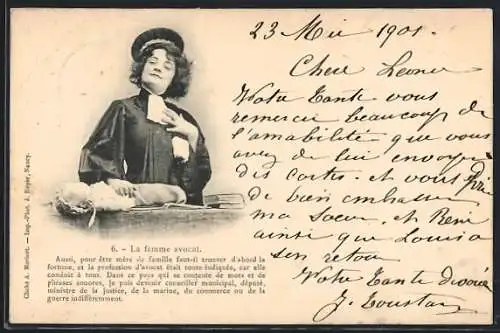 23 Mai 1901.
Chère Leonie
Votre tante vous
remercie beaucoup de
l'amabilité que vous
avez de lui envoyer
des cartes. et vous prie
de bien embrasser
ma Sœur. et René
ainsi que Louisa
son retour
Votre Tante dévouée
J. Toustan
6. – La femme avocat.
Aussi, pour être mère de famille faut-il trouver d'abord la
fortune, et la profession d'avocat était toute indiquée, car elle
conduit à tout. Dans ce pays qui se contente de mots et de
phrases sonores, je puis devenir conseiller municipal, député,
ministre de la justice, de la marine, du commerce ou de la
guerre indifféremment.
Cliché A. Imp.-Phot. A. Nancy.